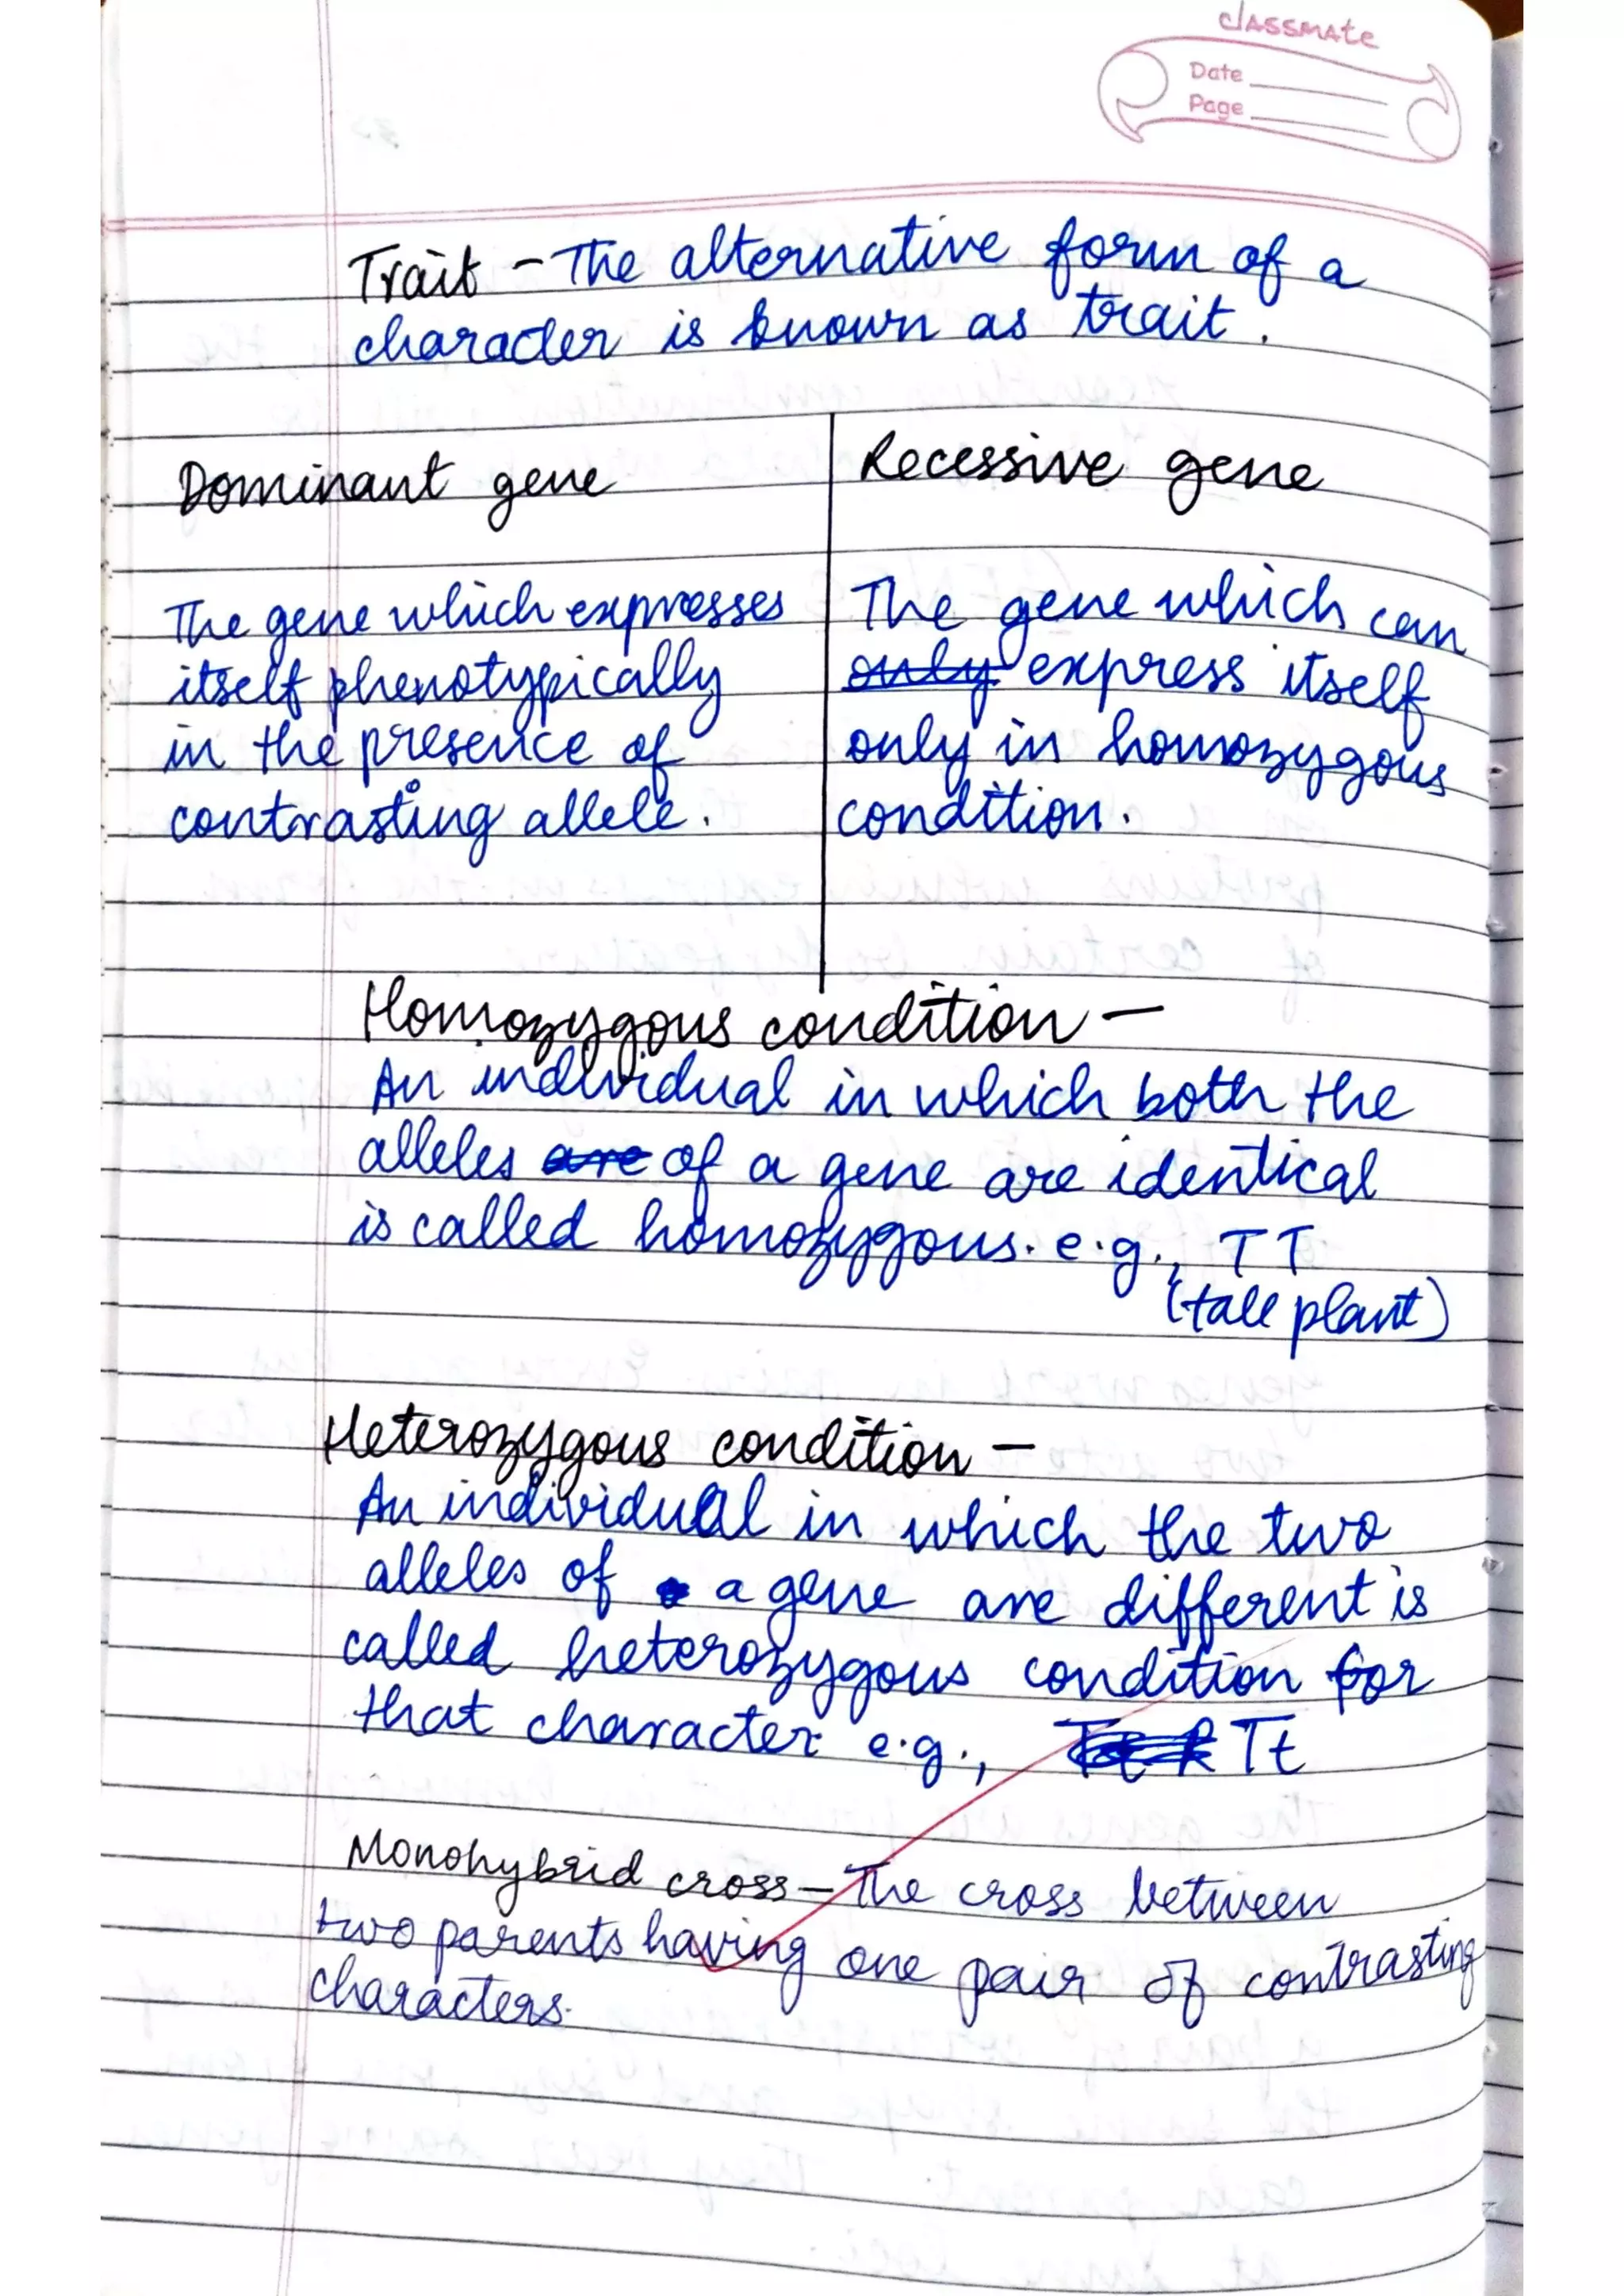 classmate
Date
Page
Trait - The alternative form of a
character is known as trait.
Dominant gene
The gene which expresses
itself phenotypically
in the presence of
contrasting allele.
Recessive gene
The gene which can
only express itself
only in homozygous
condition.
Homozygous condition -
An individual in which both the
alleles are of a gene are identical
is called homozygous. e.g., TT
(tall plant)
Heterozygous condition -
An individual in which the two
alleles of a gene are different is
called heterozygous condition for
that character e.g., Tt
Monohybrid cross - The cross between
two parents having one pair of contrasting
characters.